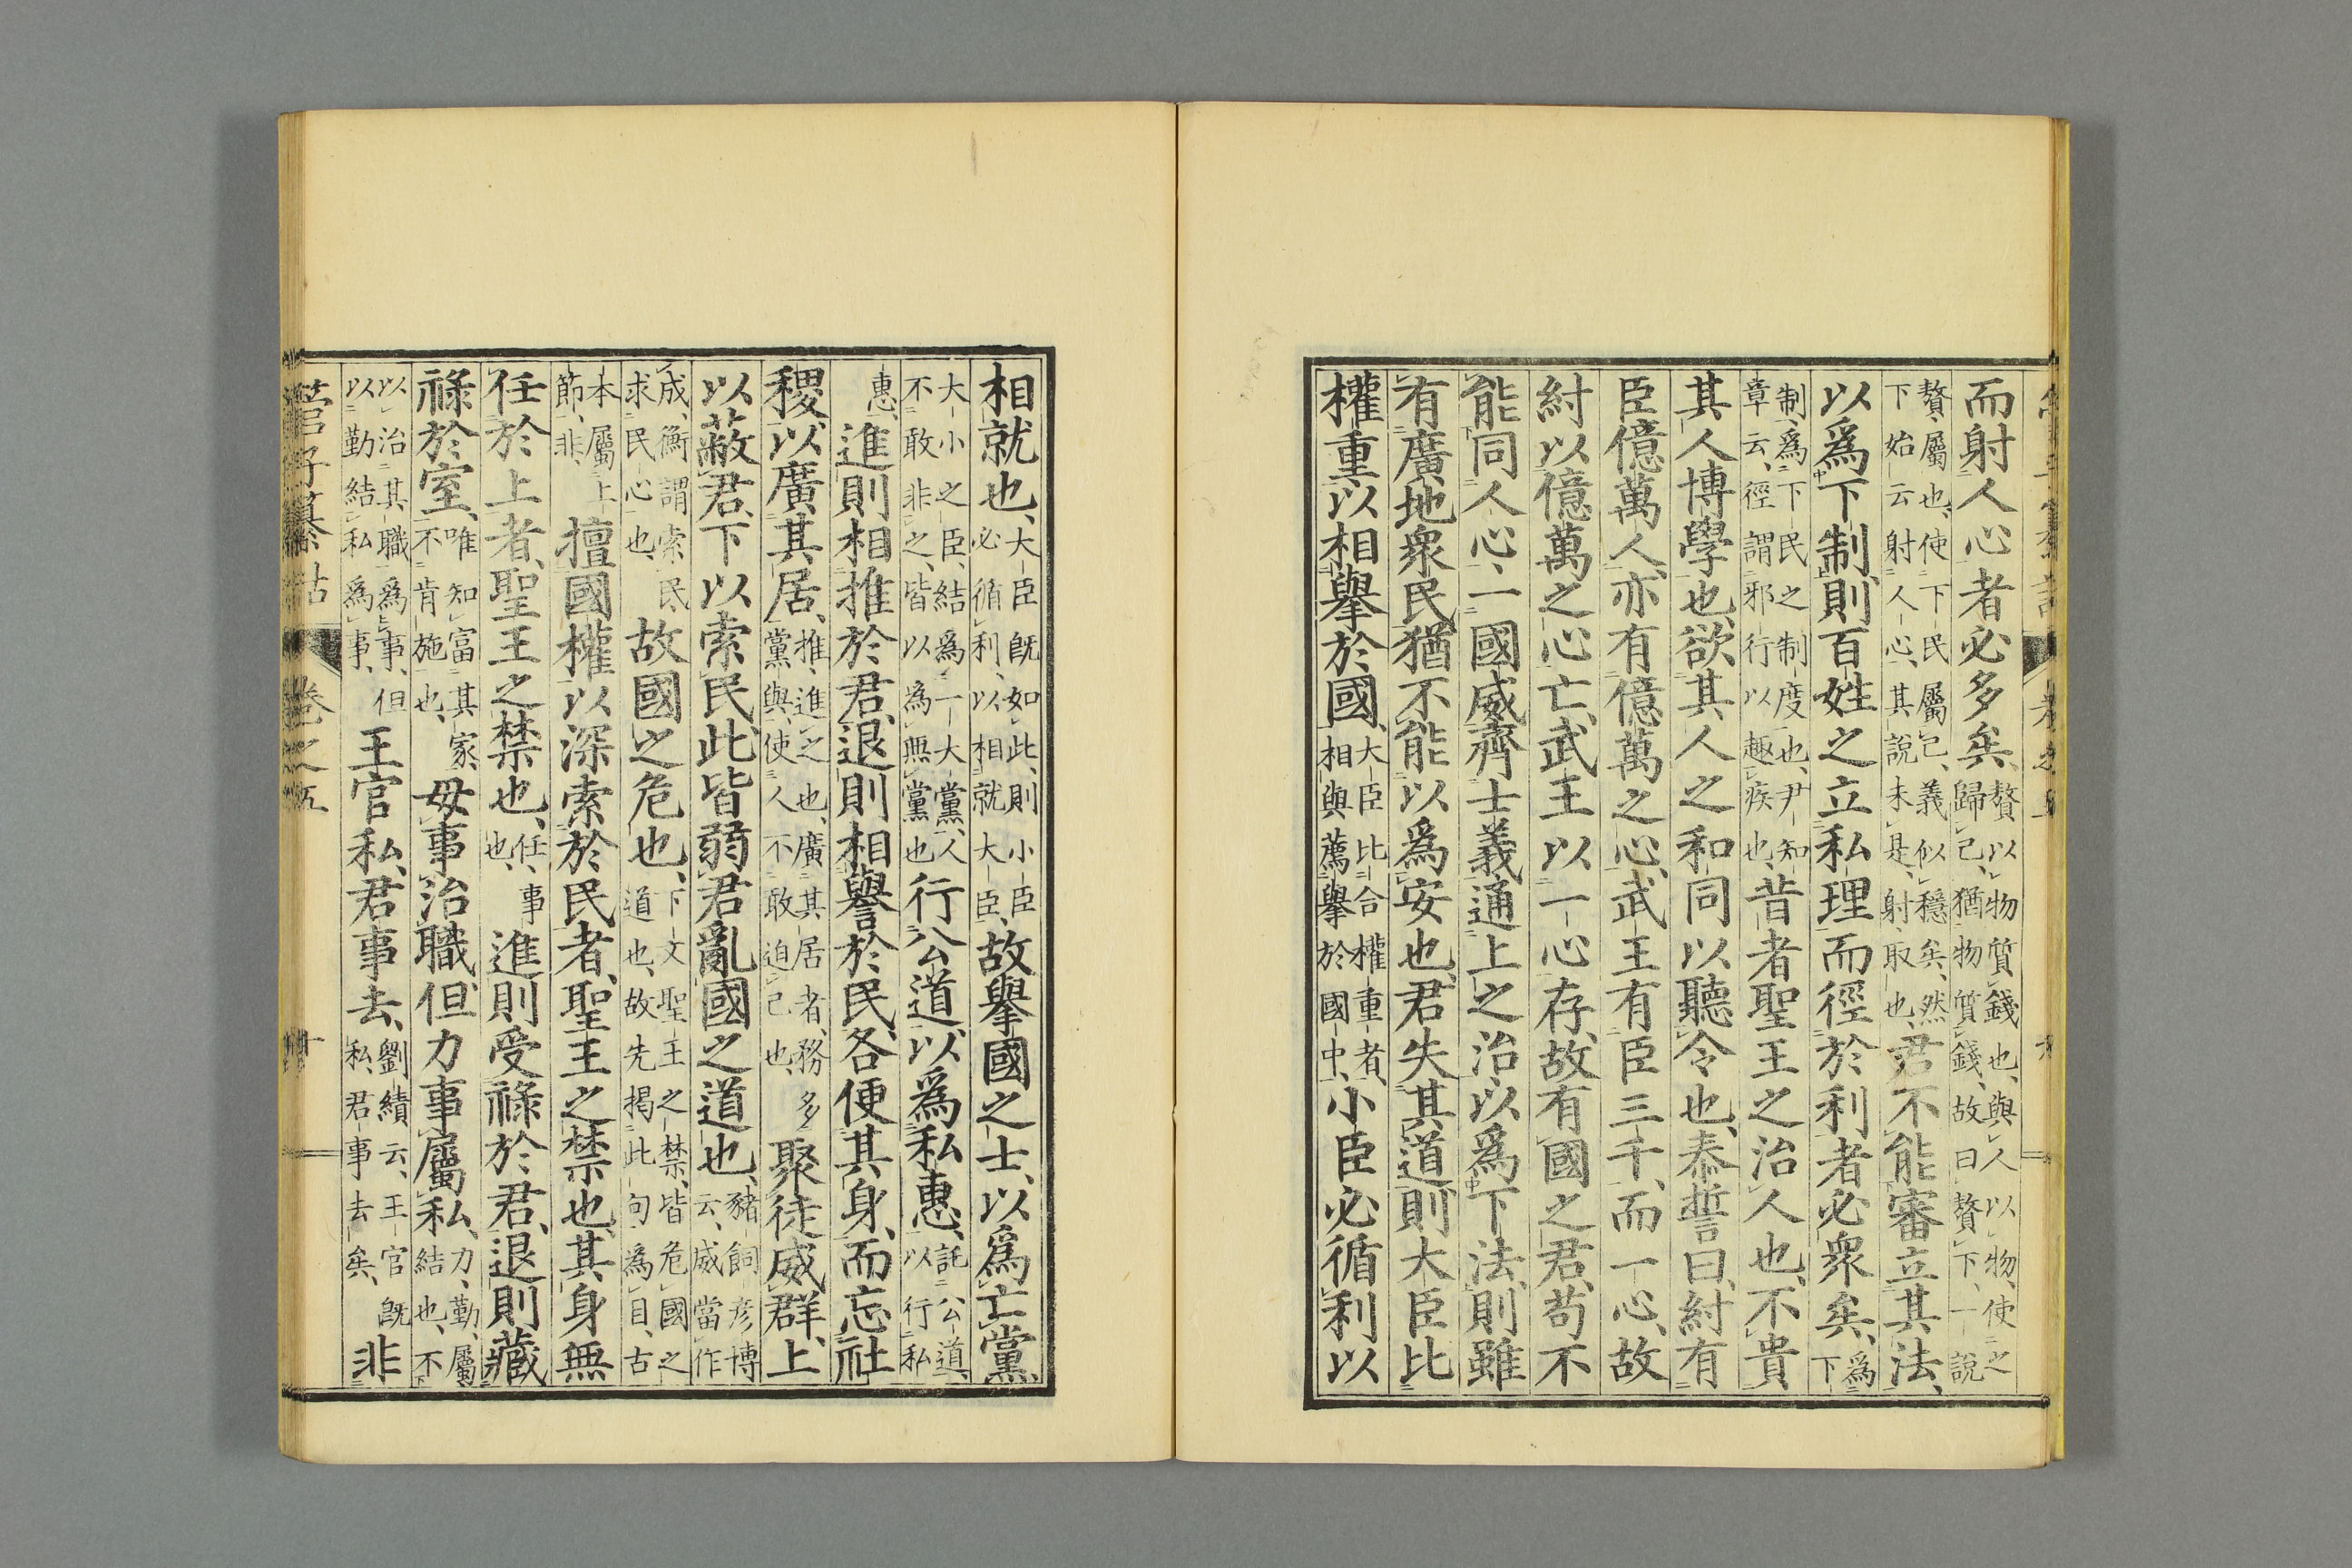 而射人心者必多矣、贅以物質錢也、與人以物、使之歸己、猶物質錢、故曰贅下、一説
贅、屬也、使下民屬己、義似穩矣、然下始云射人心、其説未是、射、取也、君不能審立其法、
以爲下制、則百姓之立私理而徑於利者必衆矣、爲下
制、爲下民之制度也、尹知章云、徑謂邪行以趣疾也、昔者聖王之治人也、不貴
其人博學也、欲其人之和同以聽令也、泰誓曰、紂有
臣億萬人、亦有億萬之心、武王有臣三千、而一心、故
紂以億萬之心亡、武王以一心存、故有國之君、苟不
能同人心、一國威、齊士義、通上之治以爲下法、則雖
有廣地衆民、猶不能以爲安也、君失其道、則大臣比
權重、以相擧於國、大臣比合權重者、相與薦擧於國中、小臣必循利以
相就也、大臣旣如此、則小臣必循利、以相就大臣、故擧國之士、以爲亡黨、
大小之臣、結爲一大黨、人不敢非之、皆以為無黨也行公道、以爲私惠、託公道、以行私
惠、進則相推於君、退則相譽於民、各便其身、而忘社
稷、以廣其居、推、進之也、廣其居者、務多黨與、使人不敢迫己也、聚徒威群、上
以蔽君、下以索民、此皆弱君亂國之道也、豬飼彦博云、威當作
成、衡謂索民、求民心也、故國之危也、下文聖王之禁、皆危國之道也、故先揭此句爲目、古
本屬上節、非、擅國權以深索於民者、聖王之禁也、其身無
任於上者、聖王之禁也、任、事也、進則受祿於君、退則藏
祿於室、唯知富其家、不肯施也、毋事治職、但力事屬私、力、勤、屬、結也、不
以治其職爲事、但以勤結私爲事、王官私、君事去、劉績云、王官旣私、君事去矣、非
管子纂詁 卷之五 十